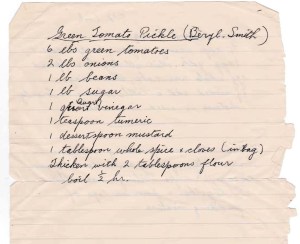 Green Tomato Pickle (Beryl. Smith)
6 lbs green tomatoes
2 lbs onions
1 lb beans
1 lb sugar
1 quart vinegar
1 teaspoon tumeric
1 desertspoon mustard
1 tablespoon whole spice & cloves (in bag)
Thicken with 2 tablespoons flour
boil ½ hr.